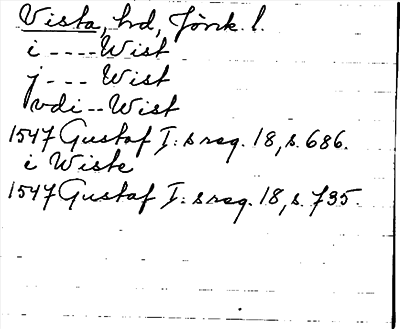 Vista, hd, Jönk. l.
i ---- Wist
j --- Wist
vdi -- Wist
1547 Gustaf I:s reg. 18, s. 686.
i Wiste
1547 Gustaf I:s reg. 18, s. 735.